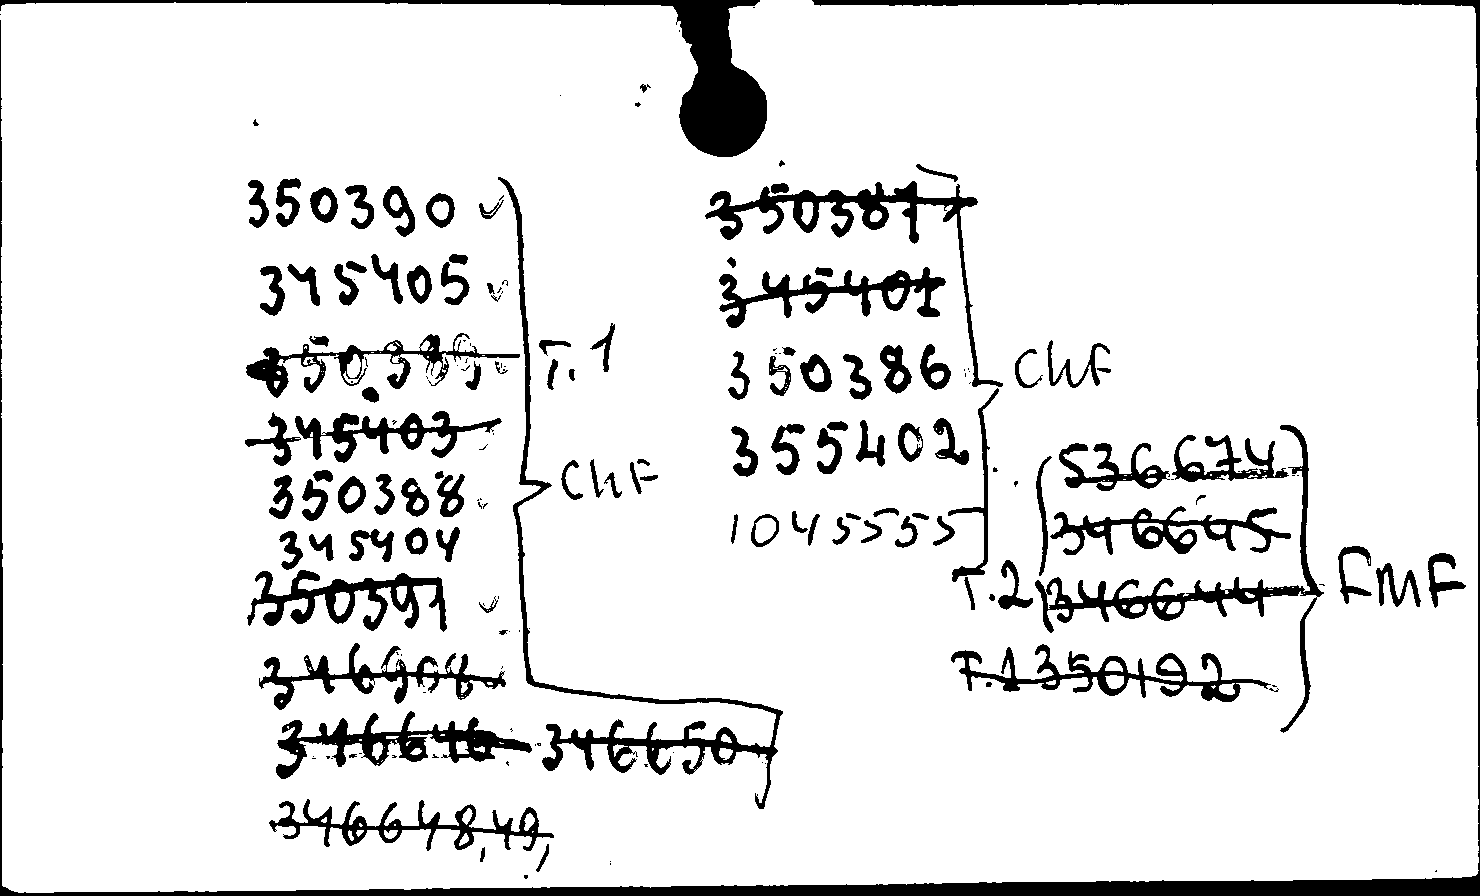 350390 ✓
345405 ✓
350389
T.1
345403
350388
345404
350391 ✓
346908
346646 346650
346648,49,
CHF
350387
345401
350386
355402
1045555
CHF
536674
346645
T.2 346644
T.1 350192
FMF